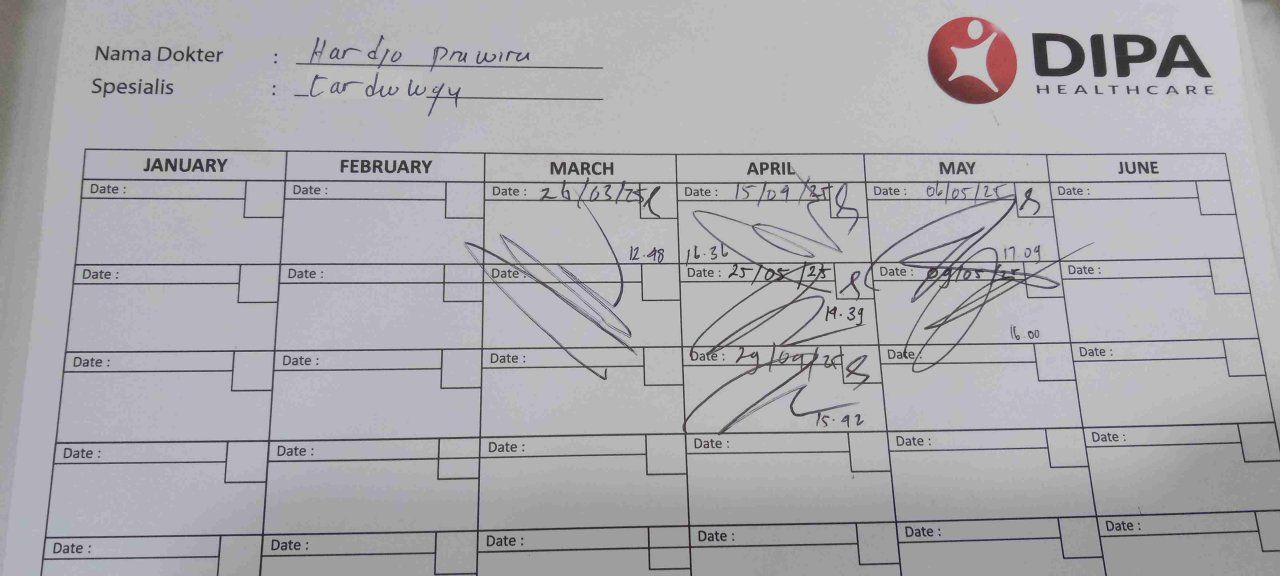 Nama Dokter : Hardjo Prawira
Spesialis : Cardiology
DIPA
HEALTHCARE
JANUARY FEBRUARY MARCH APRIL MAY JUNE
Date : Date : Date : 26/03/25 Date : 15/04/25 Date : 06/05/25 Date :
12.48 16.36 17.09
Date : Date : Date : Date : 25/05/25 Date : 09/05/25 Date :
14.39 16.00
Date : Date : Date : Date : 29/04/25 Date : Date :
15.42
Date : Date : Date : Date : Date : Date :
Date : Date : Date : Date : Date : Date :